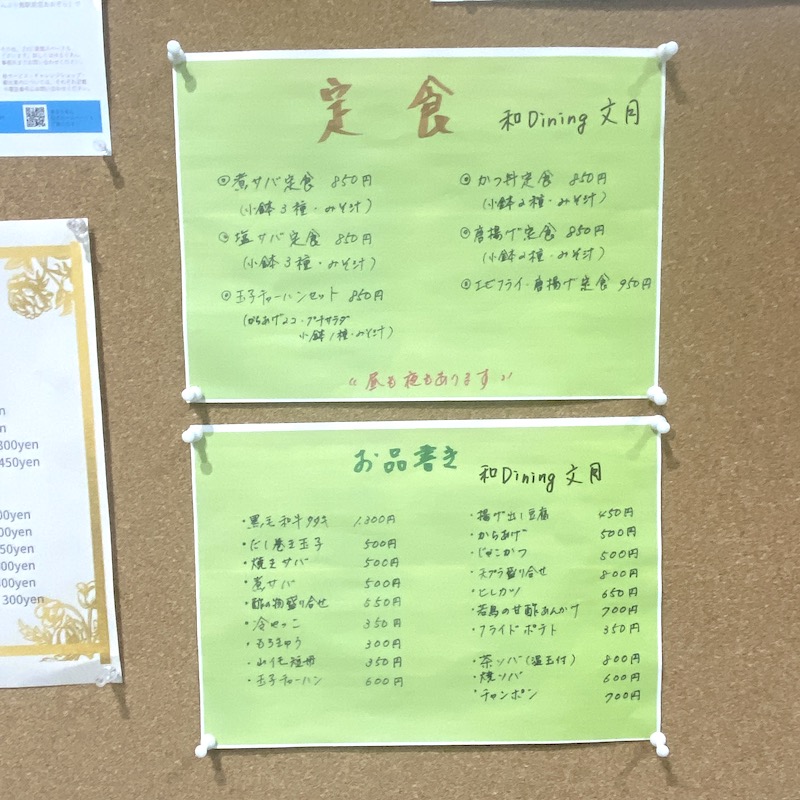 定食 和Dining 文月
◎煮サバ定食 850円
(小鉢3種・みそ汁)
◎塩サバ定食 850円
(小鉢3種・みそ汁)
◎玉子チャーハンセット 850円
(からあげ2コ・プチサラダ
小鉢1種・みそ汁)
◎かつ丼定食 850円
(小鉢2種・みそ汁)
◎唐揚げ定食 850円
(小鉢2種・みそ汁)
◎エビフライ・唐揚げ定食 950円
"昼も夜もあります"
お品書き 和Dining 文月
・黒毛和牛タタキ 1,300円
・だし巻き玉子 500円
・焼きサバ 500円
・煮サバ 500円
・酢の物盛り合せ 550円
・冷やっこ 350円
・もろきゅう 300円
・山イモ短冊 350円
・玉子チャーハン 600円
・揚げ出し豆腐 450円
・からあげ 500円
・じゃこかつ 500円
・天プラ盛り合せ 800円
・ヒレカツ 650円
・若鳥の甘酢あんかけ 700円
・フライドポテト 350円
・茶ソバ(温玉付) 800円
・焼ソバ 600円
・チャンポン 700円
300yen
450yen
00yen
00yen
50yen
300yen
300yen
300yen